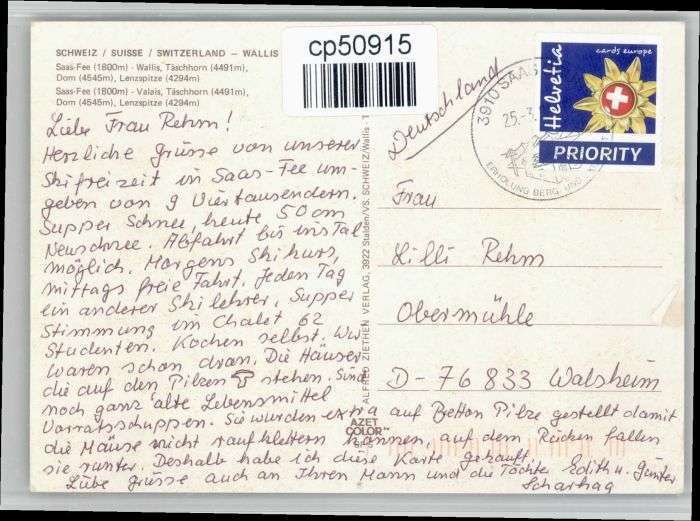 cp50915
SCHWEIZ / SUISSE / SWITZERLAND – WALLIS
Saas-Fee (1800m) - Wallis, Täschhorn (4491m),
Dom (4545m), Lenzspitze (4294m)
Saas-Fee (1800m) - Valais, Täschhorn (4491m),
Dom (4545m), Lenzspitze (4294m)
Liebe Frau Rehm!
Herzliche Grüsse von unserer
Skifreizeit in Saas-Fee um-
geben von 9 Viertausendern.
Supper Schnee, heute 50 cm
Neuschnee. Abfahrt bis ins Tal
möglich. Morgens Skikurs,
mittags freie Fahrt. Jeden Tag
ein anderer Skilehrer, Supper
Stimmung im Chalet 62
Studenten. Kochen selbst. Wir
waren schon dran. Die Häuser
die auf den Pilzen stehen. Sind
noch ganz alte Lebensmittel
Vorratsschuppen. Sie wurden extra auf Betton Pilze gestellt damit
die Mäuse nicht raufklettern können, auf dem Rücken fallen
sie runter. Deshalb habe ich diese Karte gekauft.
Liebe Grüsse auch an Ihren Mann und die Töchter Edith u. Günter
Scharhag
ALFRED ZIETHEN VERLAG, 3922 Stalden/VS. SCHWEIZ/Wallis
AZET
COLOR
Deutschland
3910 SAAS
25.-3
ERHOLUNG BERG UND
Helvetia
cards europe
PRIORITY
Frau
Lilli Rehm
Obermühle
D-76833 Walsheim